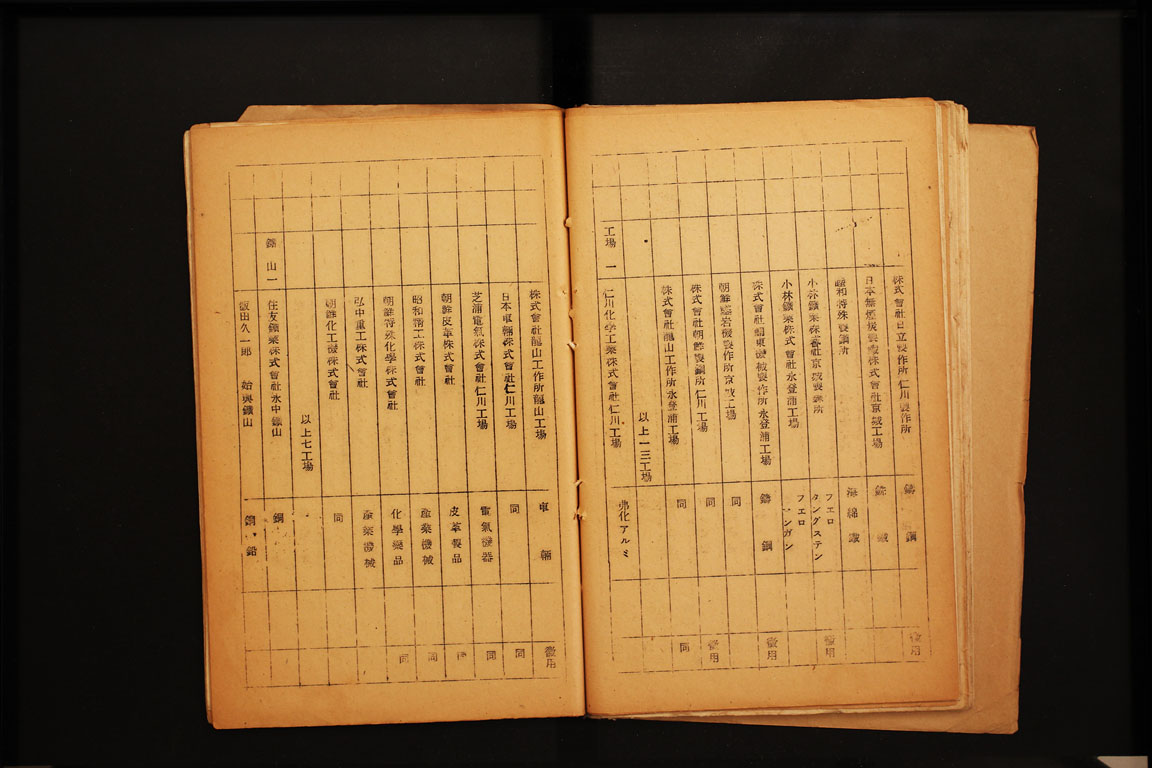 株式會社日立製作所仁川製作所 鑄鋼 徵用
日本無煙炭製鐵株式會社京城工場 銑鐵
昭和特殊製鋼所 海綿鐵
小林鑛業株式會社京城製鍊所 フエロタングステン 徵用
小林鑛業株式會社永登浦工場 フエロマンガン
株式會社關東機械製作所永登浦工場 鑄鋼 徵用
朝鮮鑿岩機製作所京城工場 同
株式會社朝鮮製鋼所仁川工場 同 徵用
株式會社龍山工作所永登浦工場 同 同
以上一三工場
工場一 仁川化學工業株式會社仁川工場 弗化アルミ
株式會社龍山工作所龍山工場 車輛 徵用
日本車輛株式會社仁川工場 同 同
芝浦電氣株式會社仁川工場 電氣機器 同
朝鮮皮革株式會社 皮革製品 同
昭和精工株式會社 產業機械 同
朝鮮特殊化學株式會社 化學藥品 同
弘中重工株式會社 產業機械
朝鮮化工機株式會社 同
以上七工場
鑛山一 住友鑛業株式會社永中鑛山 銅
飯田久一郎 始興鑛山 銅・鉛